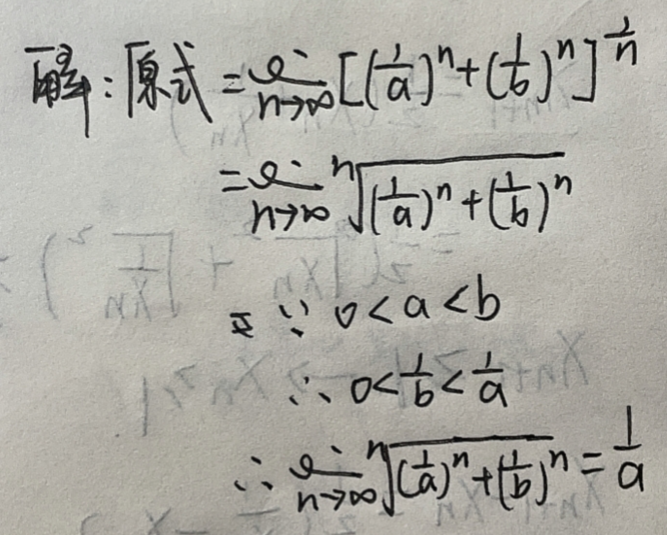 解：原式 = lim n→∞ [(1/a)^n + (1/b)^n]^(1/n)
= lim n→∞ ⁿ√((1/a)^n + (1/b)^n)
∵ 0 < a < b
∴ 0 < 1/b < 1/a
∴ lim n→∞ ⁿ√((1/a)^n + (1/b)^n) = 1/a